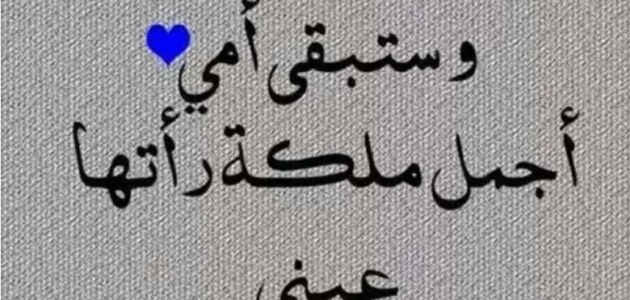 وستبقى أمي💙
أجمل ملكة رأتها
عيني